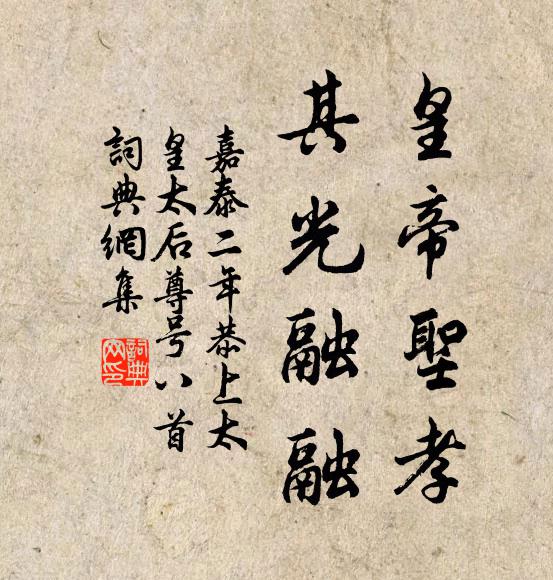 皇帝聖孝
其光融融
嘉泰二年恭上太
皇太后尊号八首
詞典網集
詞典
网印